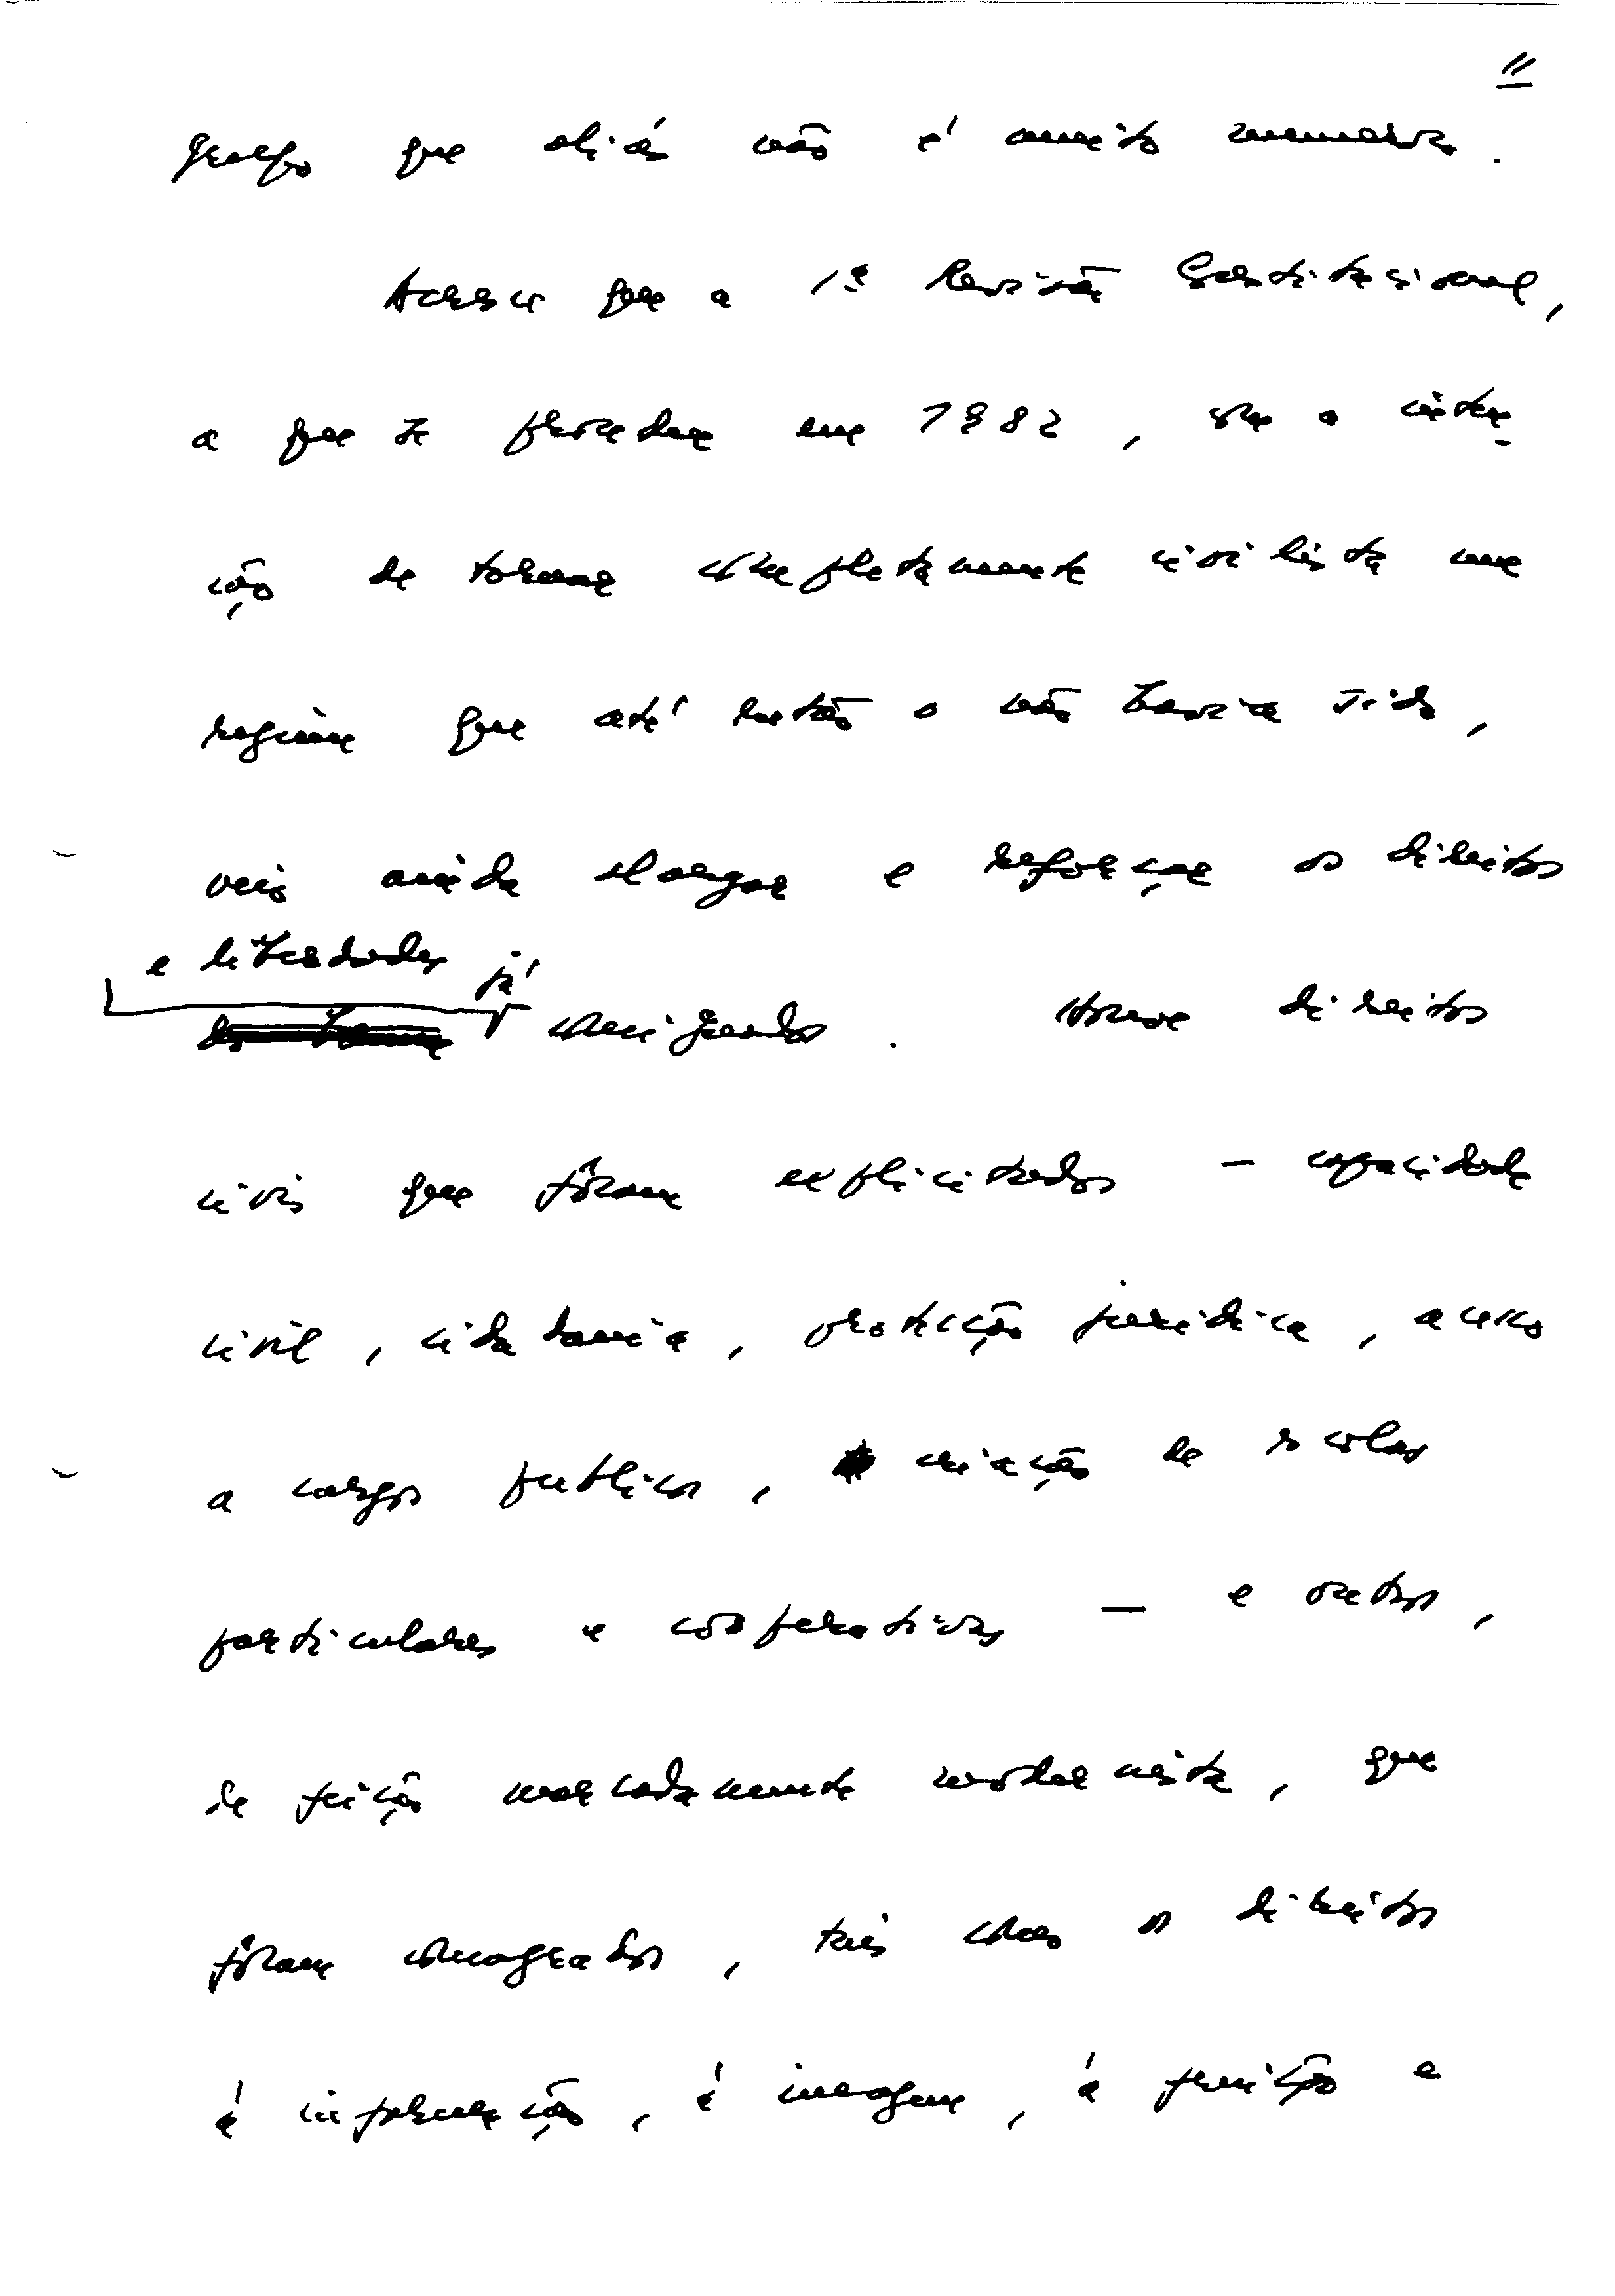 11
grupo que aliás não é muito numeroso.
Acresce que a 1ª Revisão Constitucional,
a que se procedeu em 1982, com a inten-
ção de tornar completamente civilista um
regime que até então o não havia sido,
veio ainda alargar e reforçar os direitos
e liberdades já
consignados. Houve direitos
civis que foram explicitados — capacidade
civil, cidadania, protecção jurídica, acesso
a cargos públicos, criação de escolas
particulares e cooperativas — e outros,
de feição marcadamente modernista, que
foram consagrados, tais como os direitos
à informação, à imagem, à fruição e